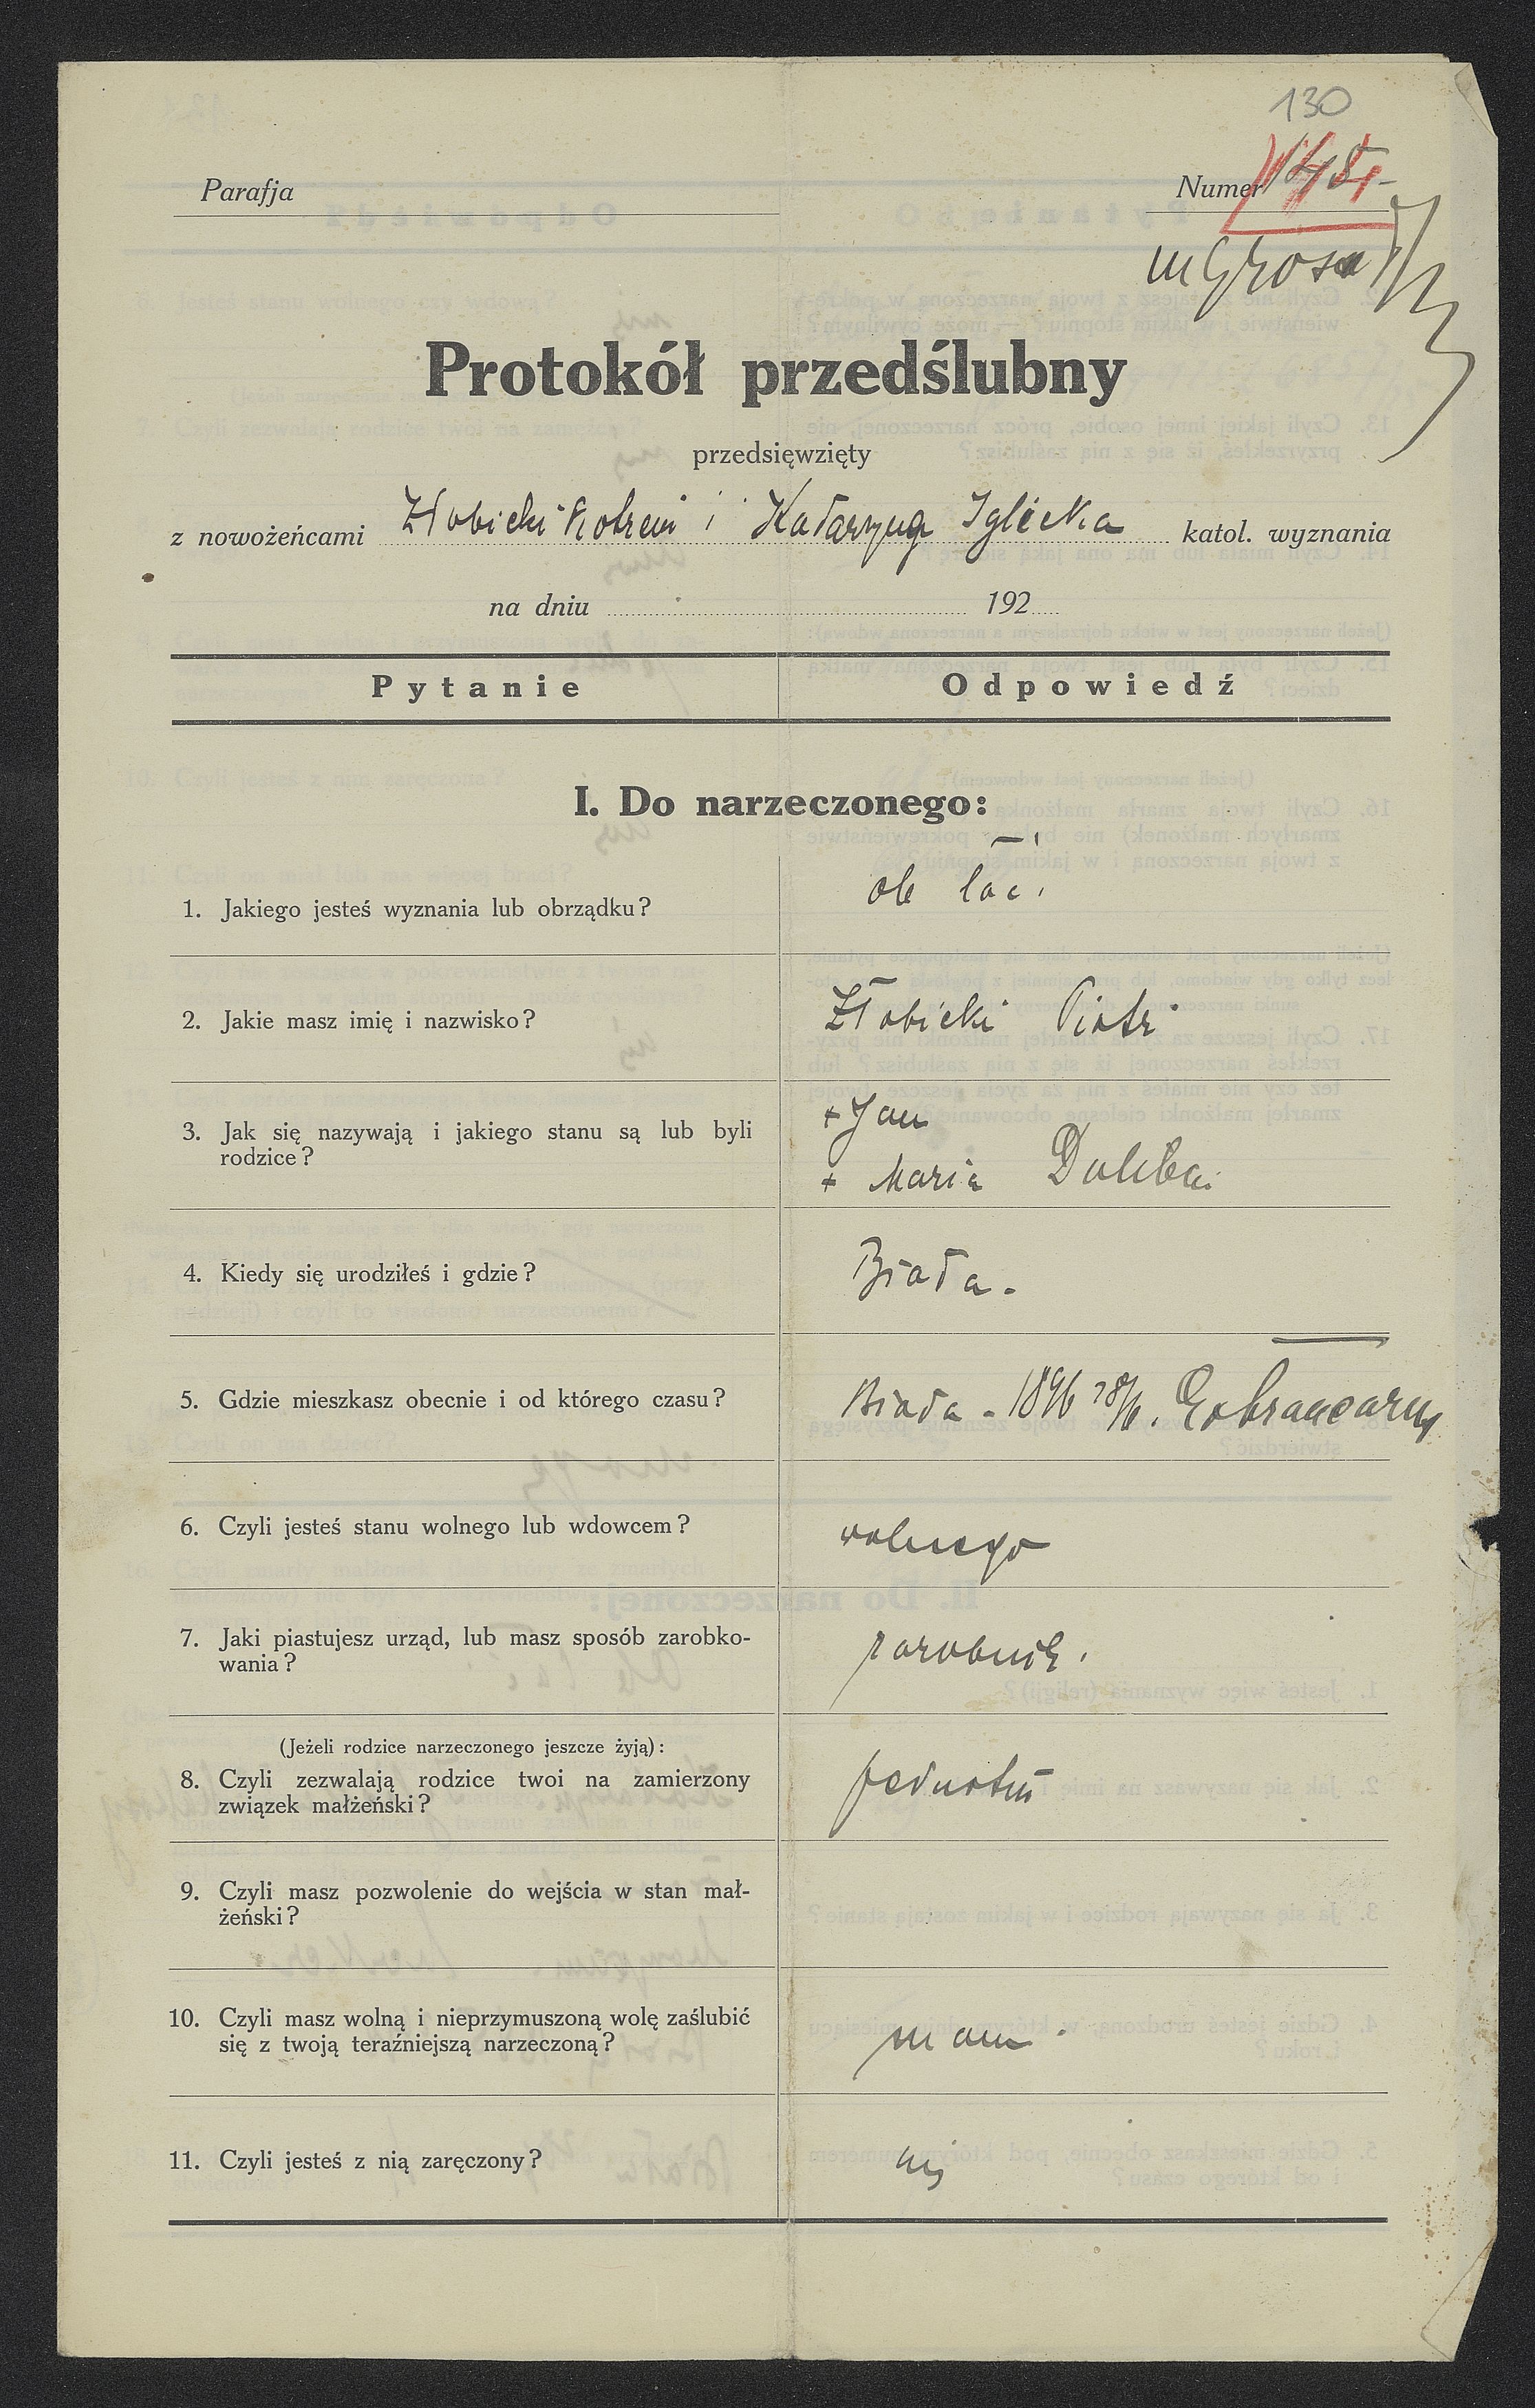 130
Parafja
Numer
Protokół przedślubny
przedsięwzięty
z nowożeńcami Złobicki Piotrem i Katarzyną Iglicka katol. wyznania
na dniu 192
Pytanie
Odpowiedź
I. Do narzeczonego:
1. Jakiego jesteś wyznania lub obrządku?
ob łać.
2. Jakie masz imię i nazwisko?
Złobicki Piotr
3. Jak się nazywają i jakiego stanu są lub byli
rodzice?
+ Jan
+ Maria
4. Kiedy się urodziłeś i gdzie?
Biała.
5. Gdzie mieszkasz obecnie i od którego czasu?
Biała - 1896
6. Czyli jesteś stanu wolnego lub wdowcem?
wolnego
7. Jaki piastujesz urząd, lub masz sposób zarobko-
wania?
zarobnik.
(Jeżeli rodzice narzeczonego jeszcze żyją):
8. Czyli zezwalają rodzice twoi na zamierzony
związek małżeński?
9. Czyli masz pozwolenie do wejścia w stan mał-
żeński?
10. Czyli masz wolną i nieprzymuszoną wolę zaślubić
się z twoją teraźniejszą narzeczoną?
mam
11. Czyli jesteś z nią zaręczony?